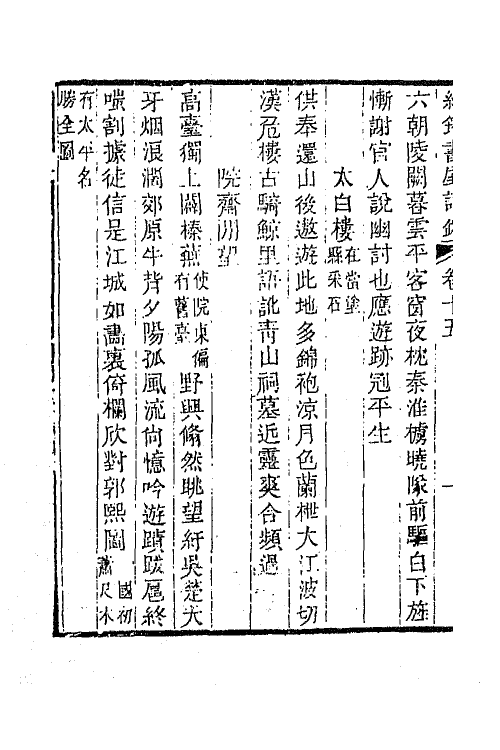 六朝陵闕暮雲平客窗夜枕秦淮櫓曉隊前驅白下旌
慚謝官人說幽討也應遊跡冠平生
太白樓在當塗縣采石
供奉還山後遨遊此地多錦袍涼月色蘭枻大江波切
漢危樓古騎鯨里語訛青山祠墓近靈爽合頻過
院齋閒望
高臺獨上闢榛蕪使院東偏有舊臺野興翛然眺望紆吳楚犬
牙烟浪濶郊原牛背夕陽孤風流尙憶吟遊躋跋扈終
嗤割據徒信是江城如畵裏倚欄欣對郭熙圖國初蕭尺木
有太平名
勝全圖
卷十五